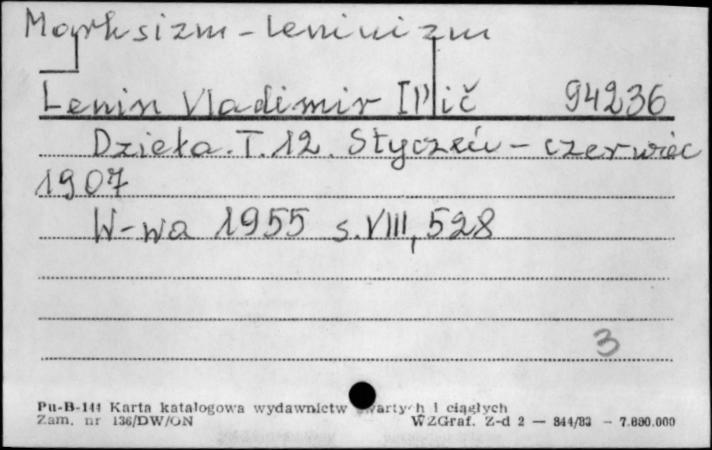 Marksizm-leninizm
Lenin Vladimir Il'ič 94236
Dzieła. T. 12. Styczeń - czerwiec
1907
W-wa 1955 s. VIII, 528
3
Pu-B-144 Karta katalogowa wydawnictw zwartych i ciągłych
Zam. nr 136/DW/ON WZGraf. Z-d 2 — 844/83 — 7.800.000